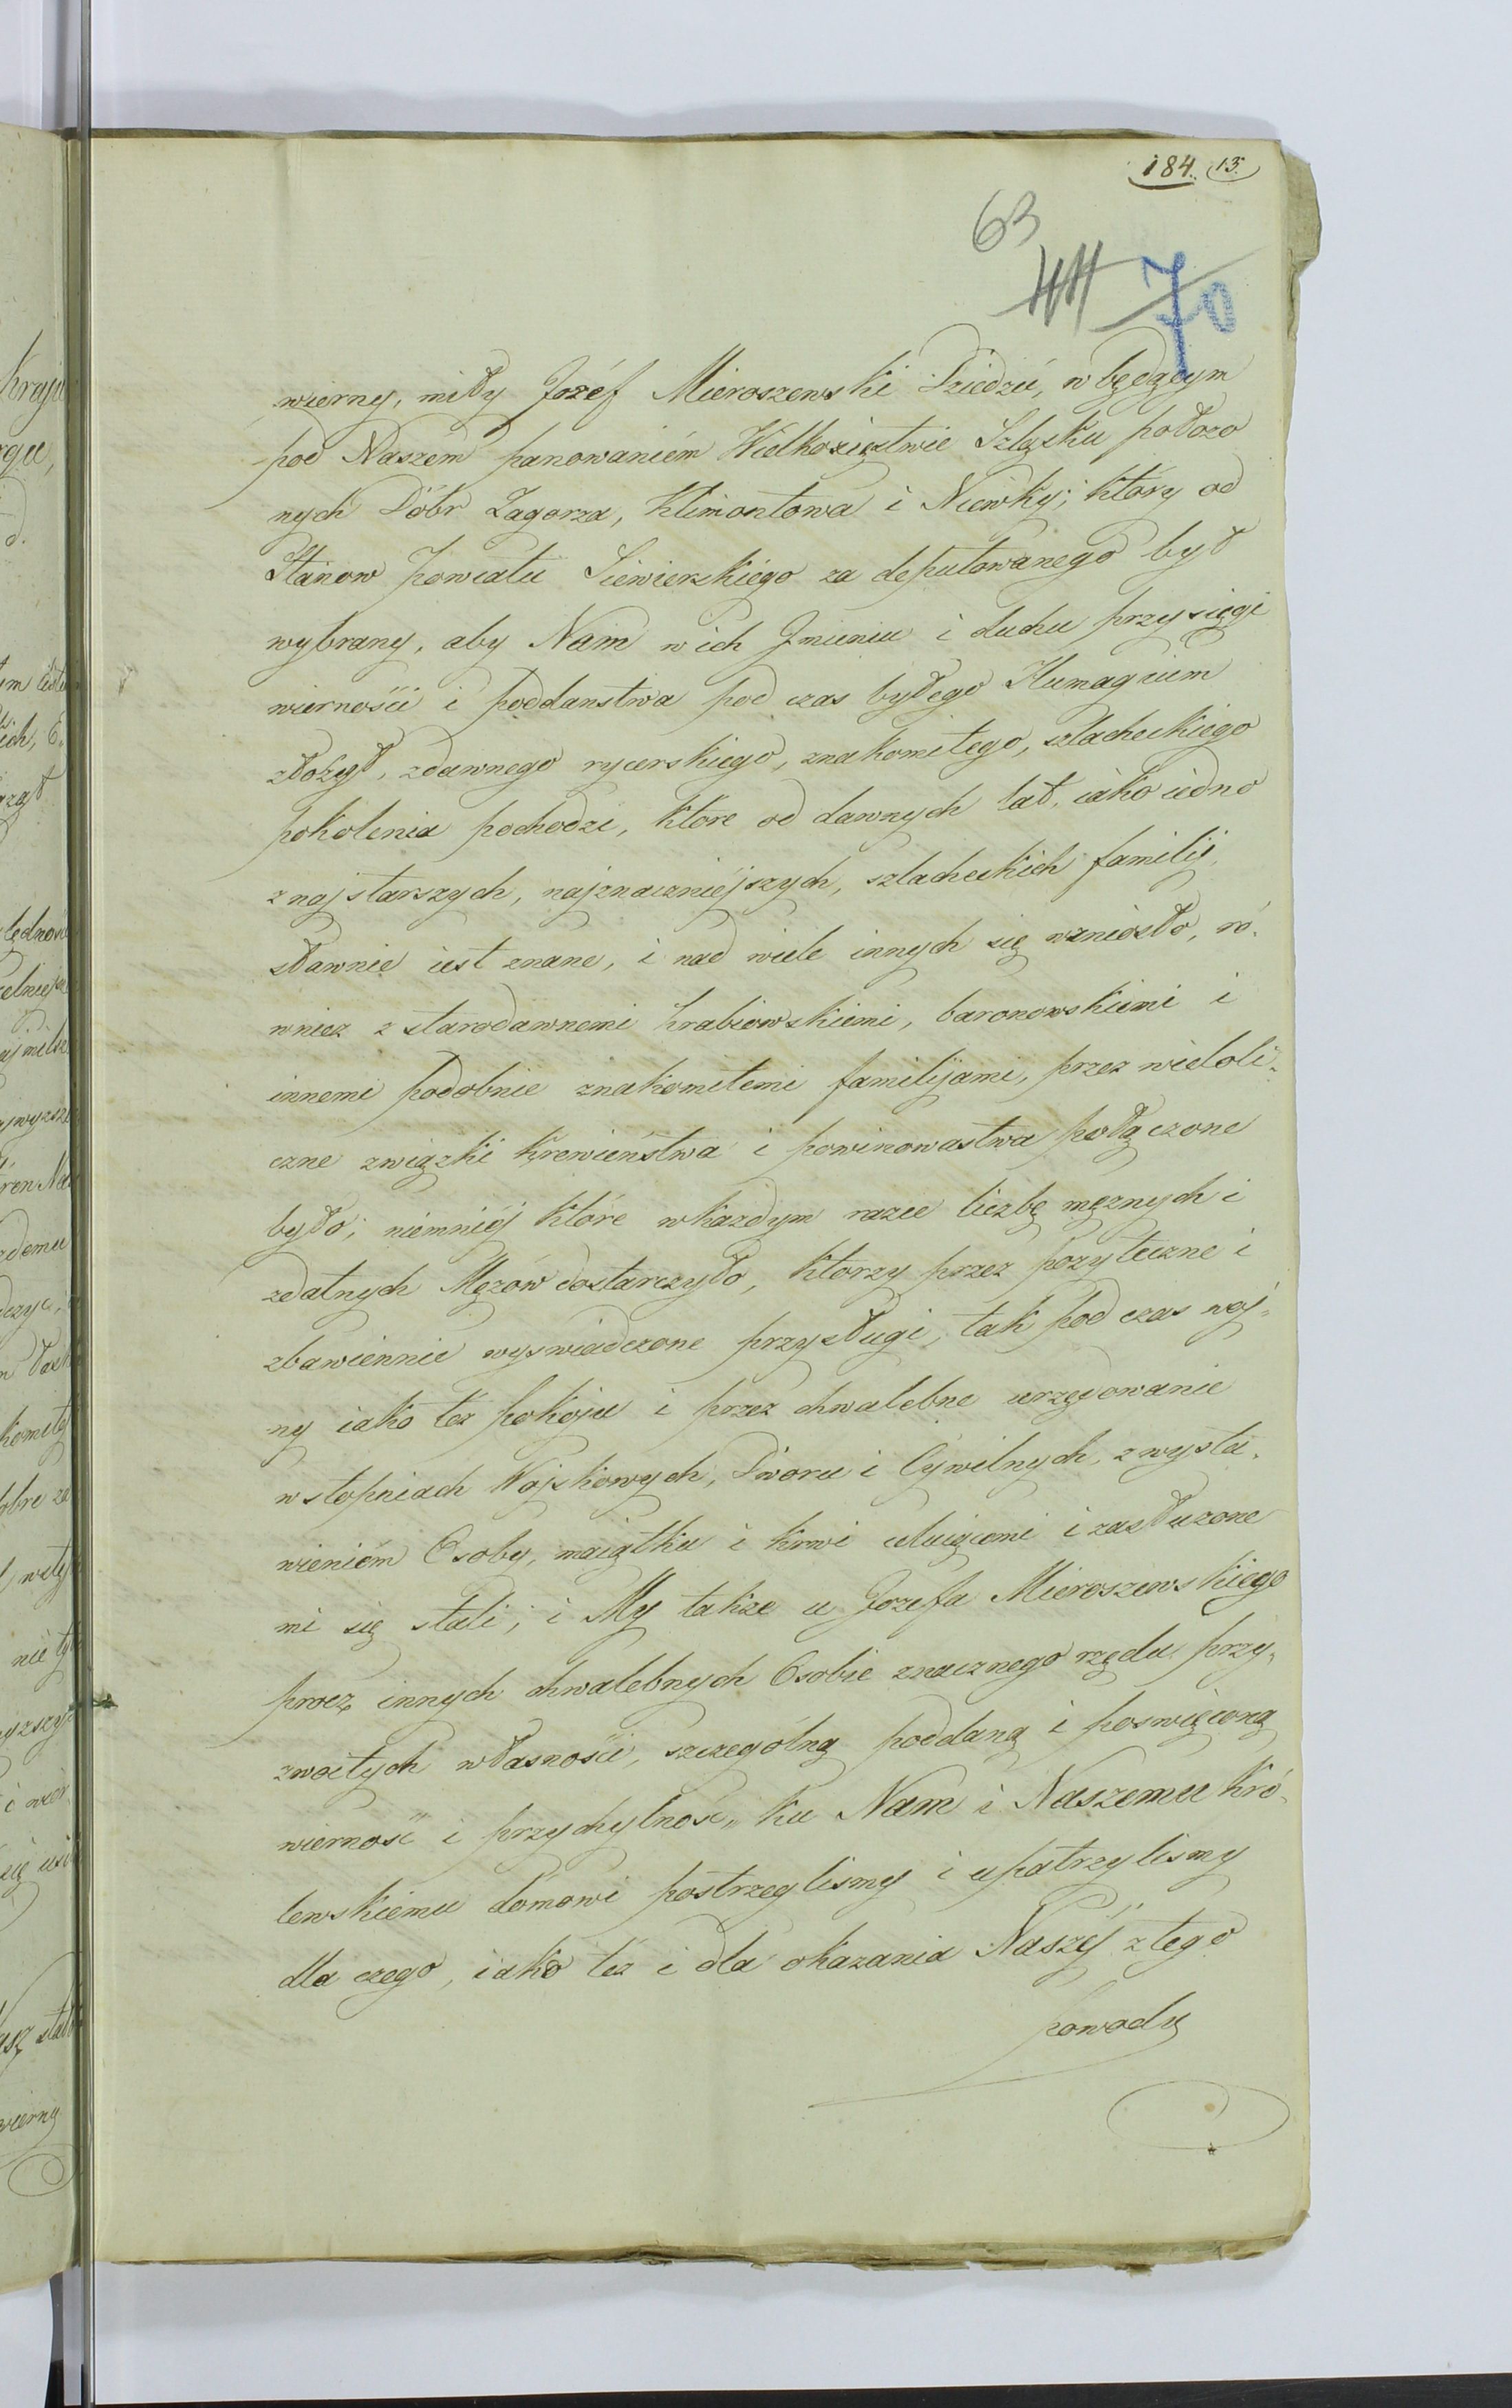 184. 13.
63
70
wierny, miły Jozéf Mieroszewski Dziedzić, w będącym
pod Naszém panowaniém Wielkoxięstwie Szląsku położo
nych Dóbr Zagorza, Klimontowa i Niewky; ktory od
Stanow Powiatu Siewierskiégo za deputowanego był
wybrany, aby Nam w ich Jmieniu i duchu przysięgi
wiernośći i poddanstwa pod czas byłego Humagium
złożył, zdawnego rycerskiego, znakomitego, szlacheckiego
pokolenia pochodzi, ktore od dawnych lat, iako iedno
z najstarszych, najznaczniéjszych, szlacheckich familij,
sławnie iest znane, i nad wiele innych się wzniosło, ró-
wniez z starodawnemi hrabiowskiemi, baronowskiemi i
innemi podobnie znakomitemi familijami, przez wieloli-
czne związki krewieństwa i powinowastwa połączone
było; niemniéj ktore w kazdym razie liczbę męznych i
zdatnych Męzów dostarczyło, ktorzy przez pozyteczne i
zbawiennie wyswiadczone przysługi, tak pod czas woj-
ny iako tez pokoju i przez chwalebne urzędowanie
w stopniach Wojskowych, Dworu i Cywilnych, z wysta-
wieniém Osoby, maiątku i krwi celuiącemi i zasłuzone
mi się stali; i My takze u Jozefa Mieroszewskiégo
procz innych chwalebnych Osobie znacznego rzędu przy-
zwoitych własnośći, szczególną poddaną i poswięconą
wierność i przychylność, ku Nam i Naszemu kró-
lewskiemu domowi postrzeglismy i upatrzylismy
dla czego, iako tez i dla okazania Naszéj z tego
powodu